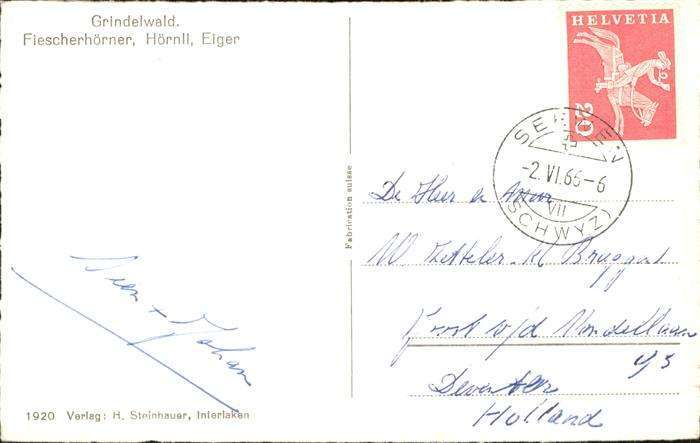 Grindelwald.
Fiescherhörner, Hörnli, Eiger
HELVETIA
20
SE
-2.VI.66-6
VII
(SCHWYZ)
Fabrication suisse
De Heer en
W Zetteler - Bruggert
v/d
95
Deventer
Holland
+ Johan
1920 Verlag: H. Steinhauer, Interlaken